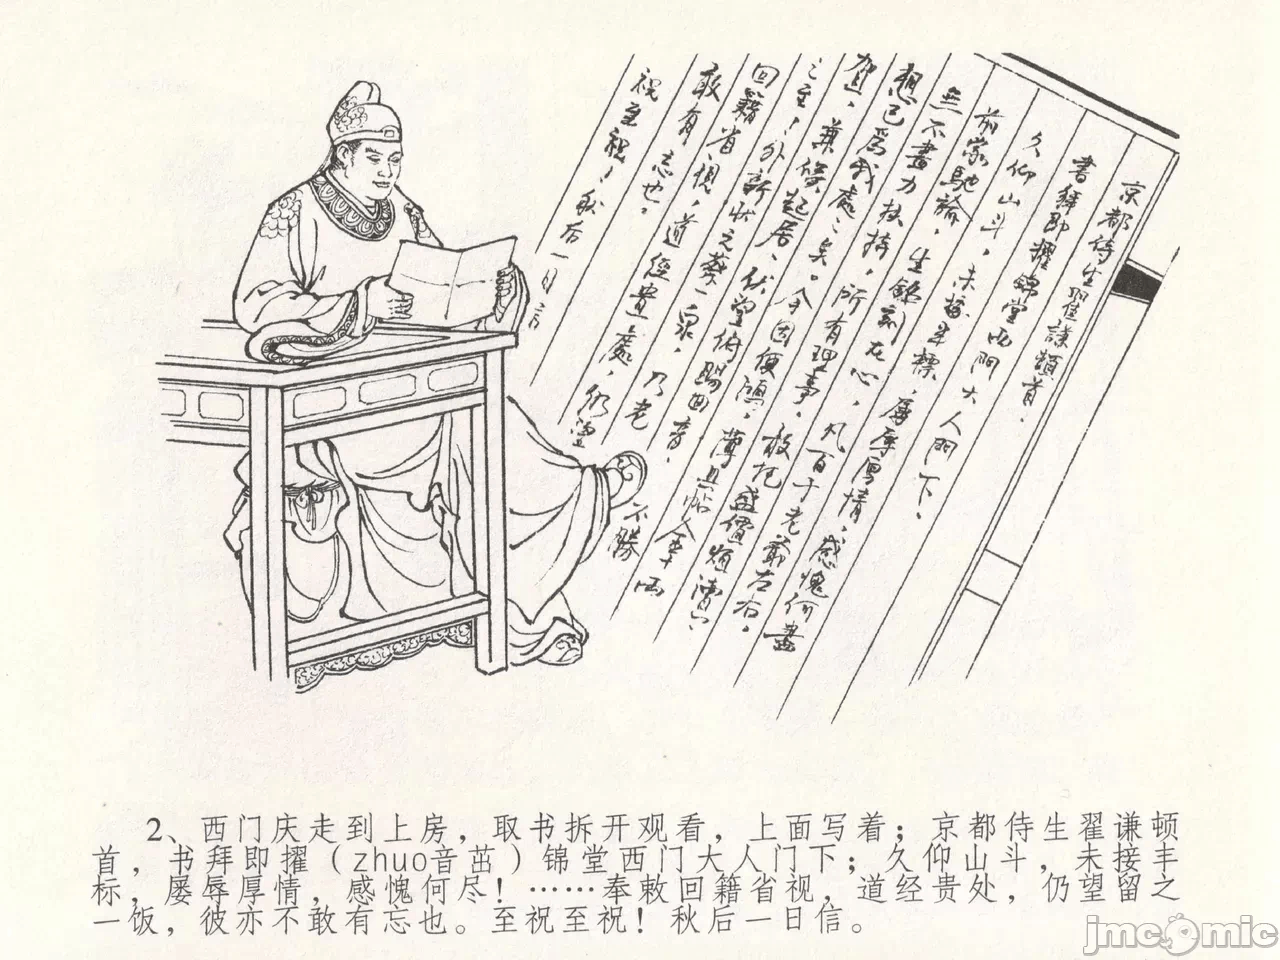 京都侍生翟謙頓首
書拜即擢錦堂西門大人門下
久仰山斗，未接丰標，屢辱厚情，感愧何盡
前家馳諭，生銘刻在心，凡百于老爺左右，
無不盡力扶持，所有理事，敢托盛价煩瀆，
想已為我處之矣。今因便鴻，薄具帖金十兩
賀，兼候起居，伏望俯賜回音，
回籍省視，道經貴處，仍望
敢有忘也。
祝至祝，秋后一日言
2、西门庆走到上房，取书拆开观看，上面写着；京都侍生翟谦顿
首，书拜即擢（zhuo音茁）锦堂西门大人门下；久仰山斗，未接丰
标，屡辱厚情，感愧何尽！……奉敕回籍省视，道经贵处，仍望留之
一饭，彼亦不敢有忘也。至祝至祝！秋后一日信。
jmcomic